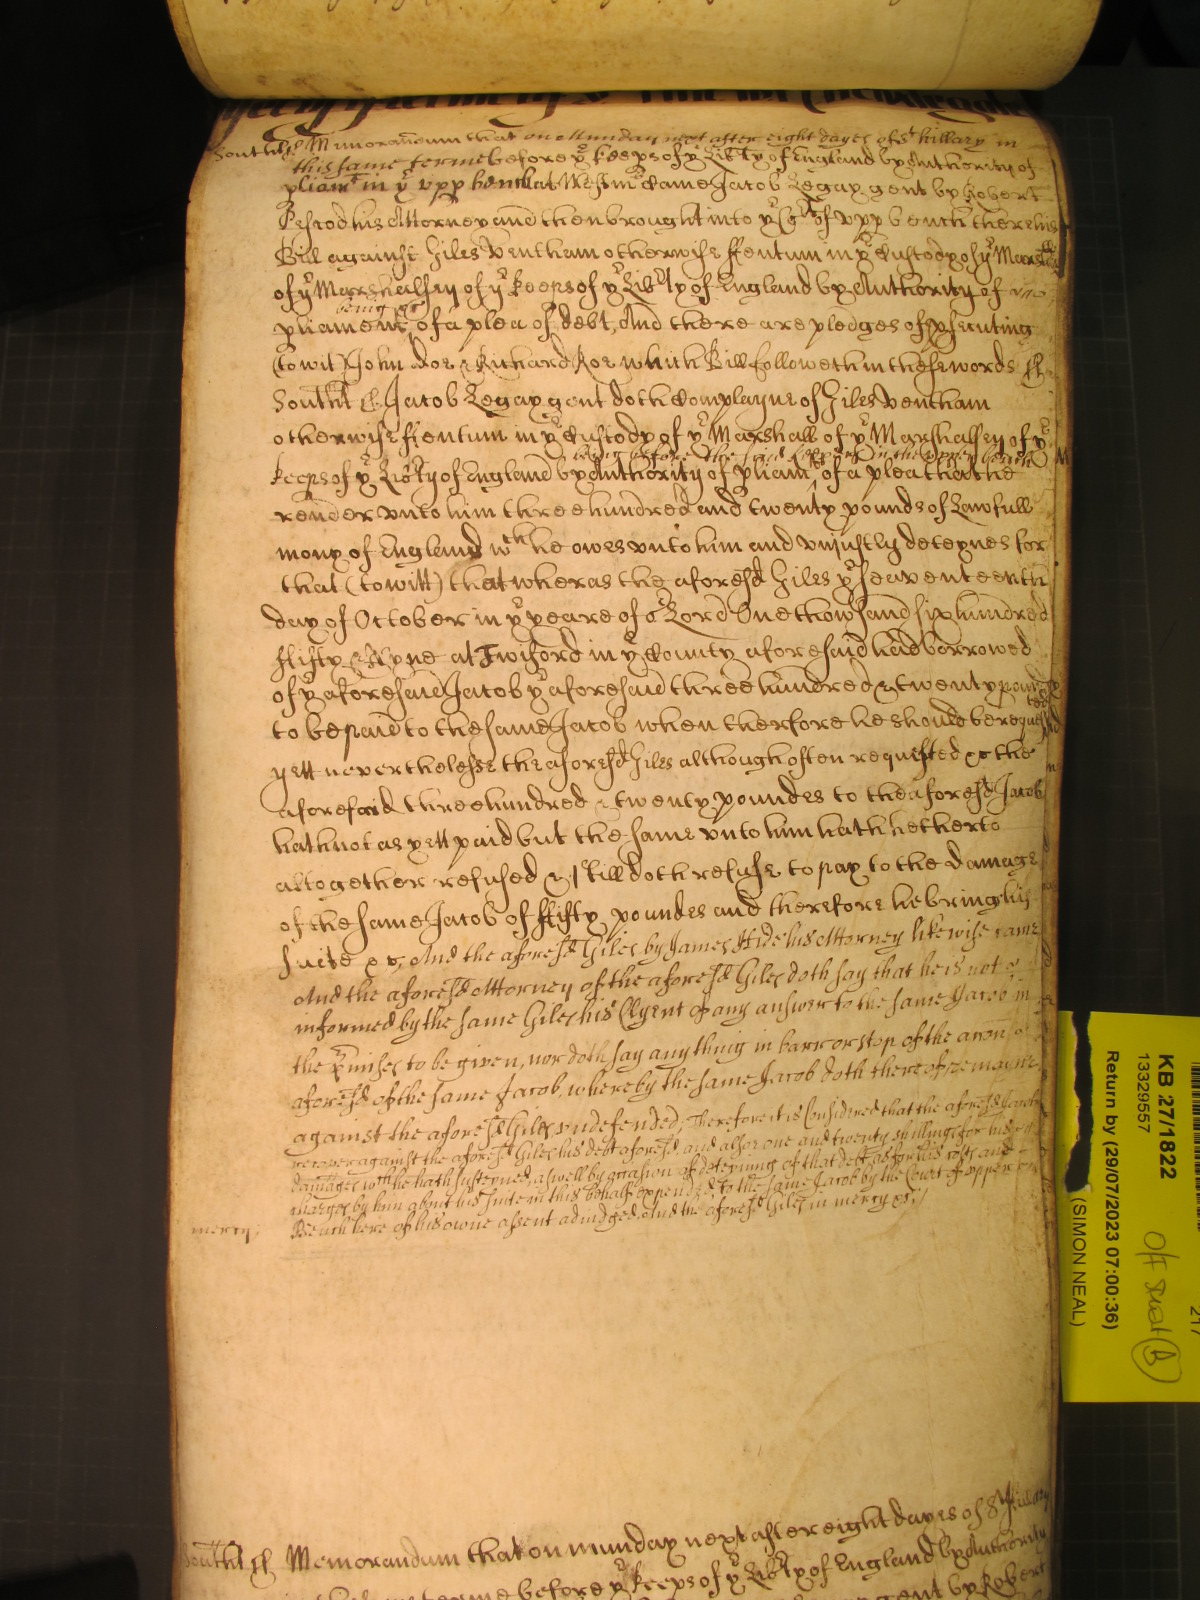 Southt ss Memorandum that on Munday next after eight dayes of St hillary in
this same terme before ye keeps of ye Lib'ty of England by Authority of
pliamt in ye upp bench at Westmr came Jacob Legay gent by Robert
Pescod his Attorney and then brought into ye Ct of upp bench there his
Bill against Giles Ventham otherwise ffentum in ye Custody of ye Marshall
of ye Marshalsey of ye keeps of ye Lib'ty of England by Authority of
being &c
pliament, of a plea of debt, And there are pledges of psecuting
(to wit) John Doe & Richard Roe which Bill followeth in these words ss
Southt ss Jacob Legay gent doth Complayne of Giles Ventham
otherwise ffentum in ye Custody of ye Marshall of ye Marshalsey of ye
being before the said keepers in the upper bench
keeps of ye Lib'ty of England by Authority of pliamt, of a plea that he
render unto him three hundred and twenty pounds of Lawfull
mony of England wch he owes unto him and uniustly deteynes for
that (to witt) that wheras the aforesd Giles ye seaventeenth
day of October in ye yeare of or Lord One thowsand six hundred
ffifty & Nyne at Twiford in ye County aforesaid had borrowed
of ye aforesaid Jacob ye aforesaid three hundred & twenty pounds
to be paid to the same Jacob when therfore he should be requested
yett nevertheless the aforesd Giles although often requested &c the
aforesaid three hundred & twenty poundes to the aforesd Jacob
hath not as yett paid but the same unto him hath hetherto
altogether refused & still doth refuse to pay to the Damage
of the same Jacob of ffifty poundes and therefore he bringes his
suite &c, And the aforesd Giles by James Hide his Attorney likewise came
And the aforesd Attorney of the aforesd Giles doth say that he is not
informed by the same Giles his Clyent of any answer to the same Jacob in
the pmises to be given, nor doth say any thing in barr or stop of the accon
aforesd of the same Jacob, whereby the same Jacob doth thereof remayne
against the aforesd Giles undefended, Therefore it is Considered that the aforesd Jacob
recover against the aforesd Giles his debt aforesd, and alsoe one and twenty shillings for his
damages wch he hath susteyned, aswell by occasion of deteyning of that debt, as for his costs and
charges by him about his suite in this behalf expended, to the same Jacob by the Court of upper
Bench here of his owne assent adiudged. And the aforesd Giles in mercy &c
mercy
Southt ss Memorandum that on munday next after eight dayes of St Hillary
terme before ye keeps of ye Lib'ty of England by Authority
gent by Robert
KB 27/1822
13329557
Return by (29/07/2023 07:00:36)
(SIMON NEAL)
217